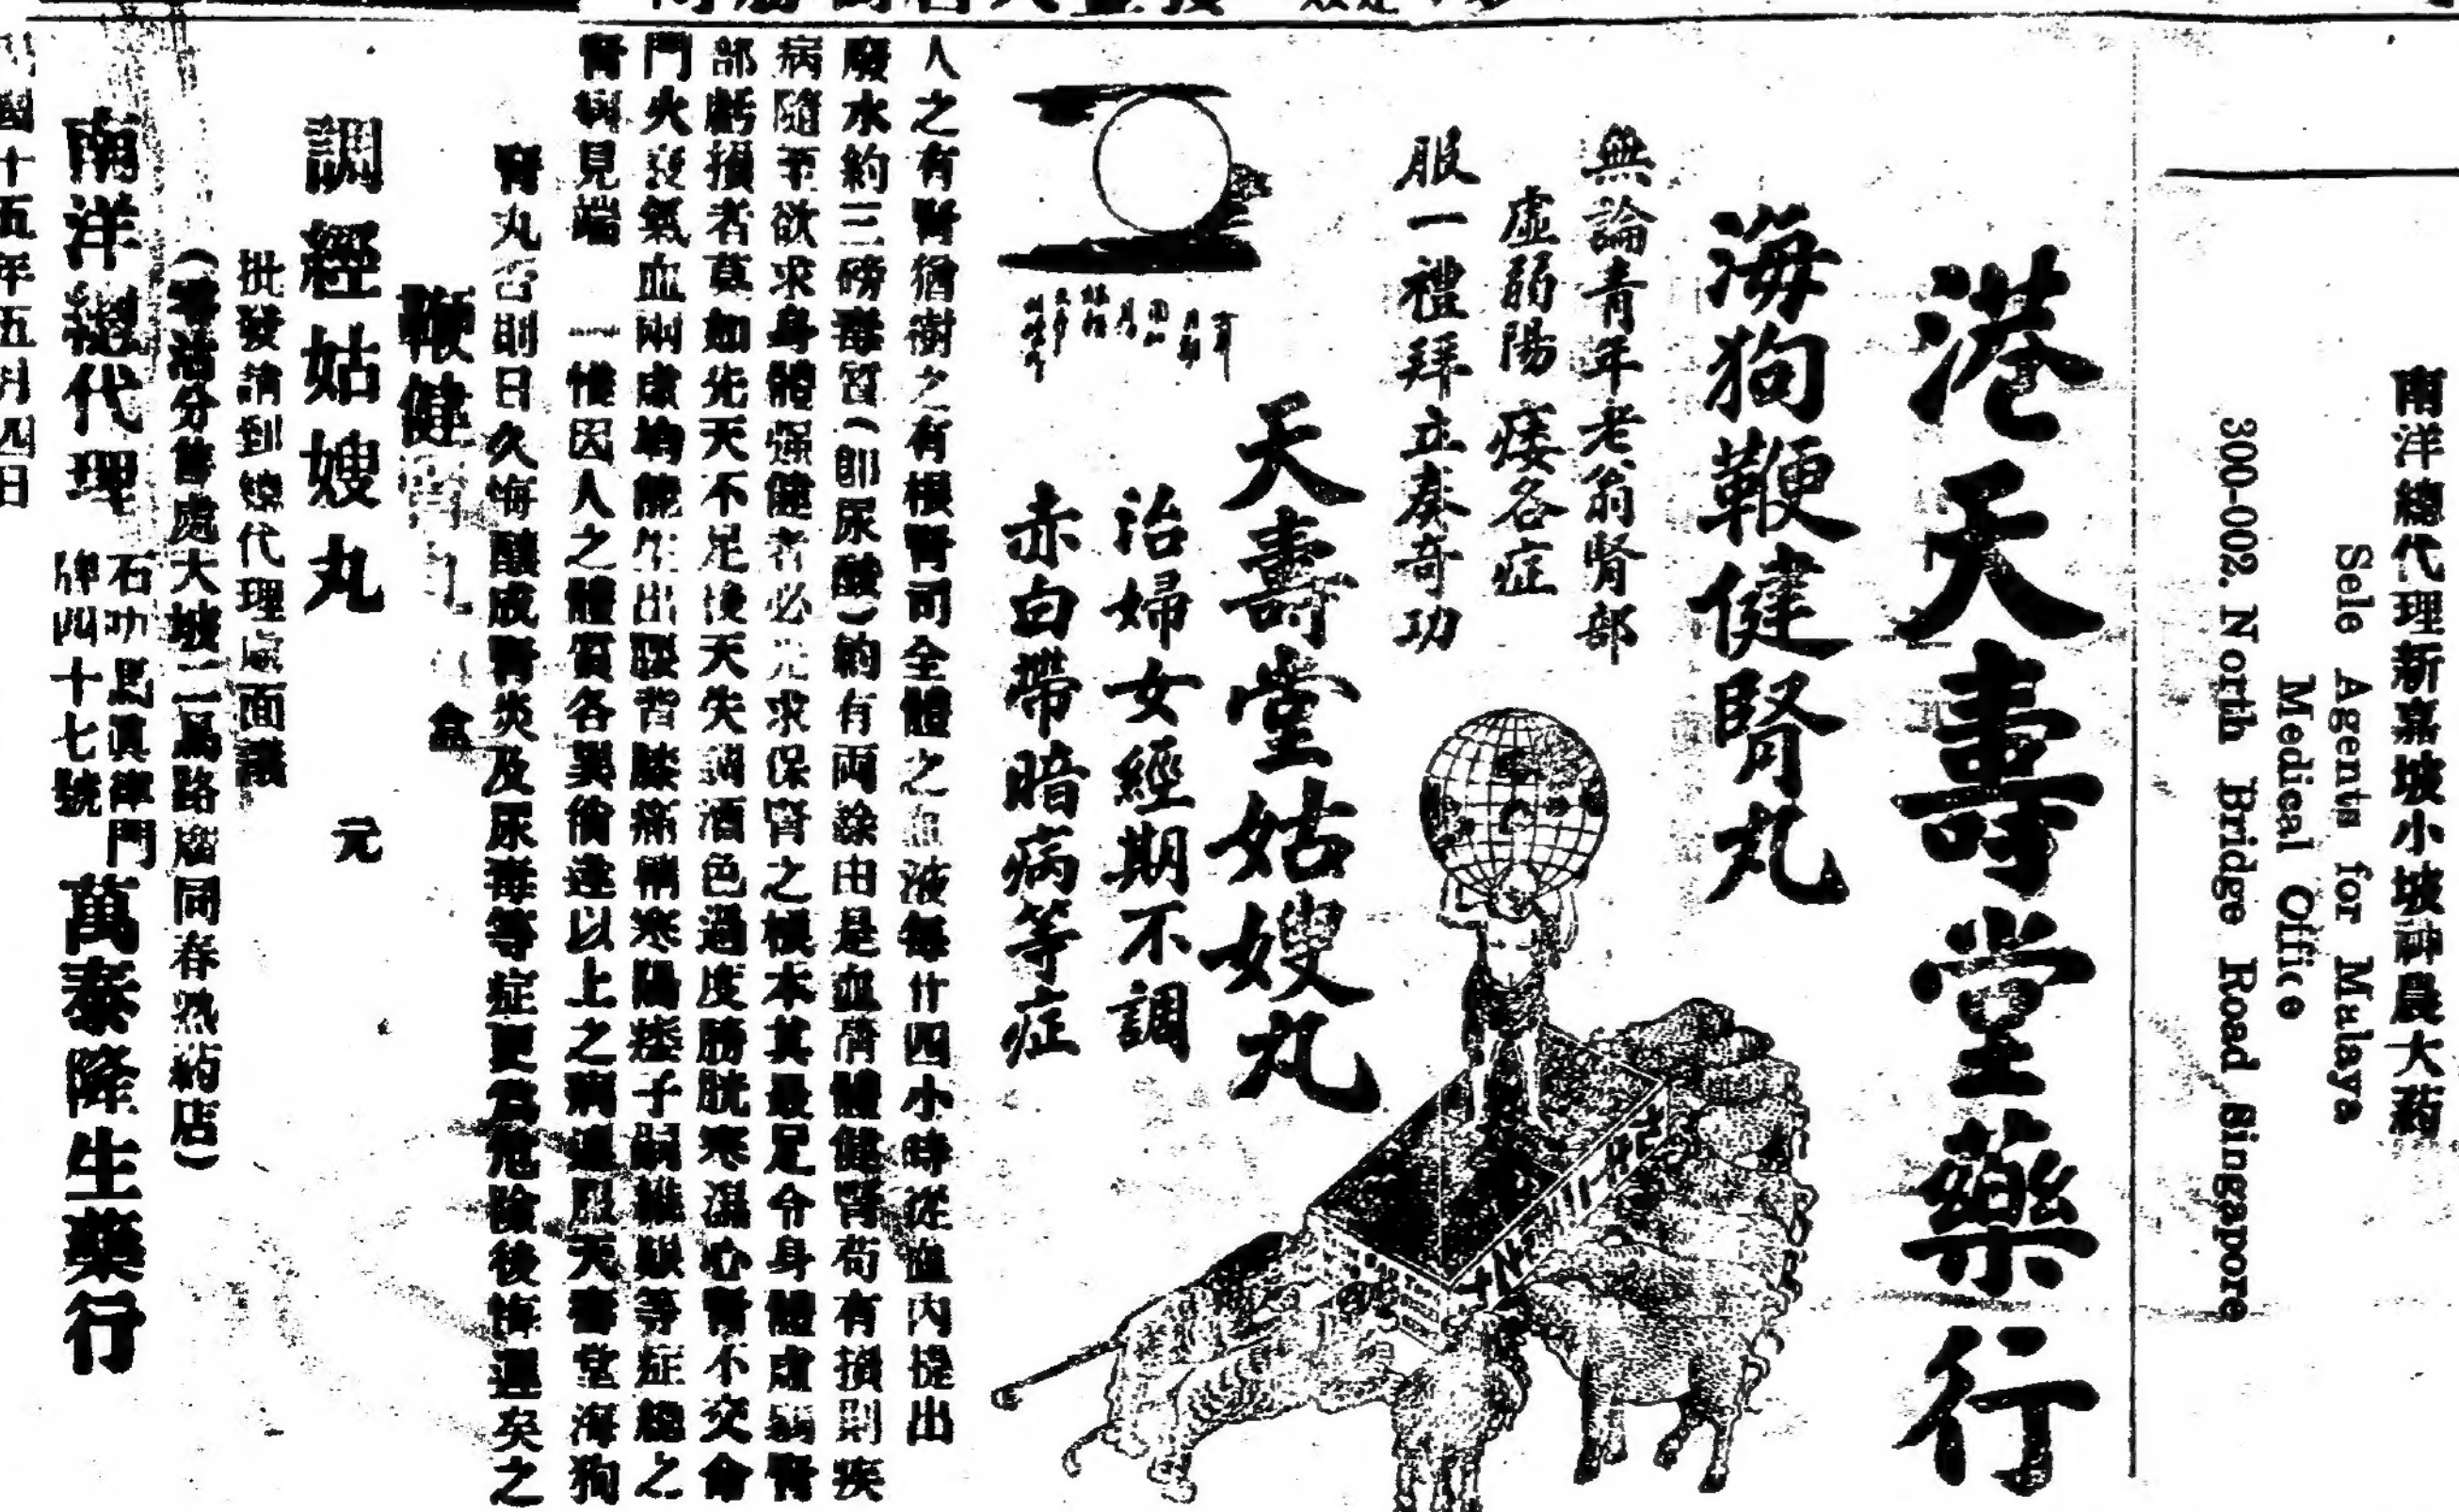 南洋總代理新嘉坡小坡神農大葯
Sele Agents for Malaya
Medical Office
300-002. North Bridge Road Singapore
港天壽堂藥行
海狗鞭健腎丸
無論青年老翁腎部
虛弱陽痿各症
服一禮拜立奏奇功
天壽堂姑嫂丸
治婦女經期不調
赤白帶暗病等症
人之有腎猶樹之有根腎司全體之血液每廿四小時從血內提出
廢水約三磅毒質(即尿酸)約有兩錢由是血清體健腎苟有損則疾
病隨至欲求身體强健者必先求保腎之根本其最足令身體虛弱腎
部虧損者莫如先天不足後天失調酒色過度膀胱寒濕心腎不交命
門火衰氣血兩虛均能生出腰背膝痛精寒陽痿子嗣艱難等症總之
腎病見端 一惟因人之體質各異倘達以上之病速服天壽堂海狗
腎丸否則日久悔釀成腎炎及尿毒等症更爲危險後悔遲矣之
鞭健腎 盒
調經姑嫂丸 元
批發請到總代理處面議
(零沽分售處大坡二馬路廣同春熟葯店)
南洋總代理 石叻馬眞律門牌四十七號 萬泰隆生藥行
國十五年五月四日